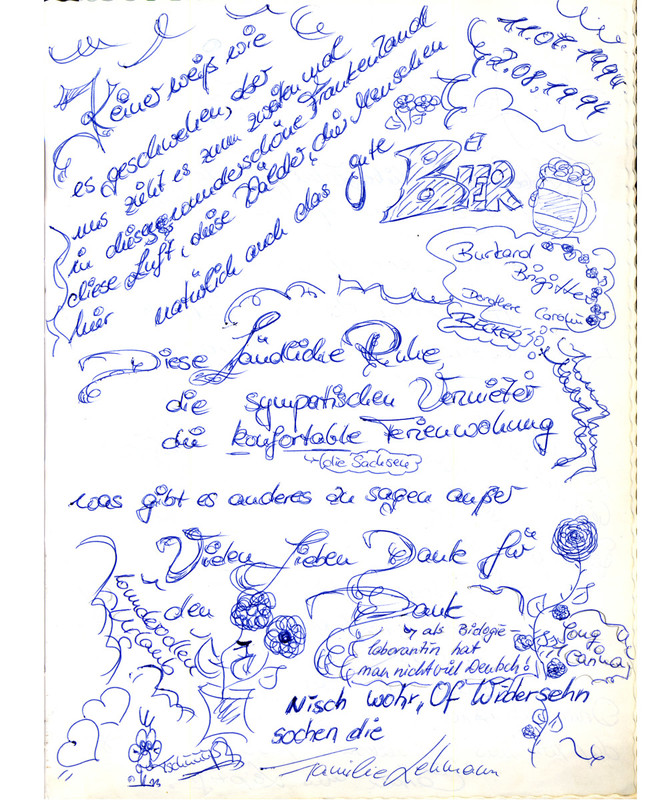 11.07.1994
2.08.1994
Keiner weiß wie
es geschwehen, aber
uns zieht es zum zweiten mal
in dieses wunderschöne Frankenland
diese Luft, diese Wälder, die Menschen
hier natürlich auch das gute
BIER
Burkard
Brigitte
Dorothere Carolin
BECKER
Diese Ländliche Ruhe,
die sympatischen Vermieter
die konfortable Ferienwohung
(die Sachsen)
was gibt es anderes zu sagen außer
Vielen Lieben Dank für
den
wundervollen
Urlaub
Dank
als Biologie-
laborantin hat
man nicht viel Deutsch!
Song
to
Carina
Nisch wohr, Of Widersehn
sochen die
Tschüüß
Familie Lehmann